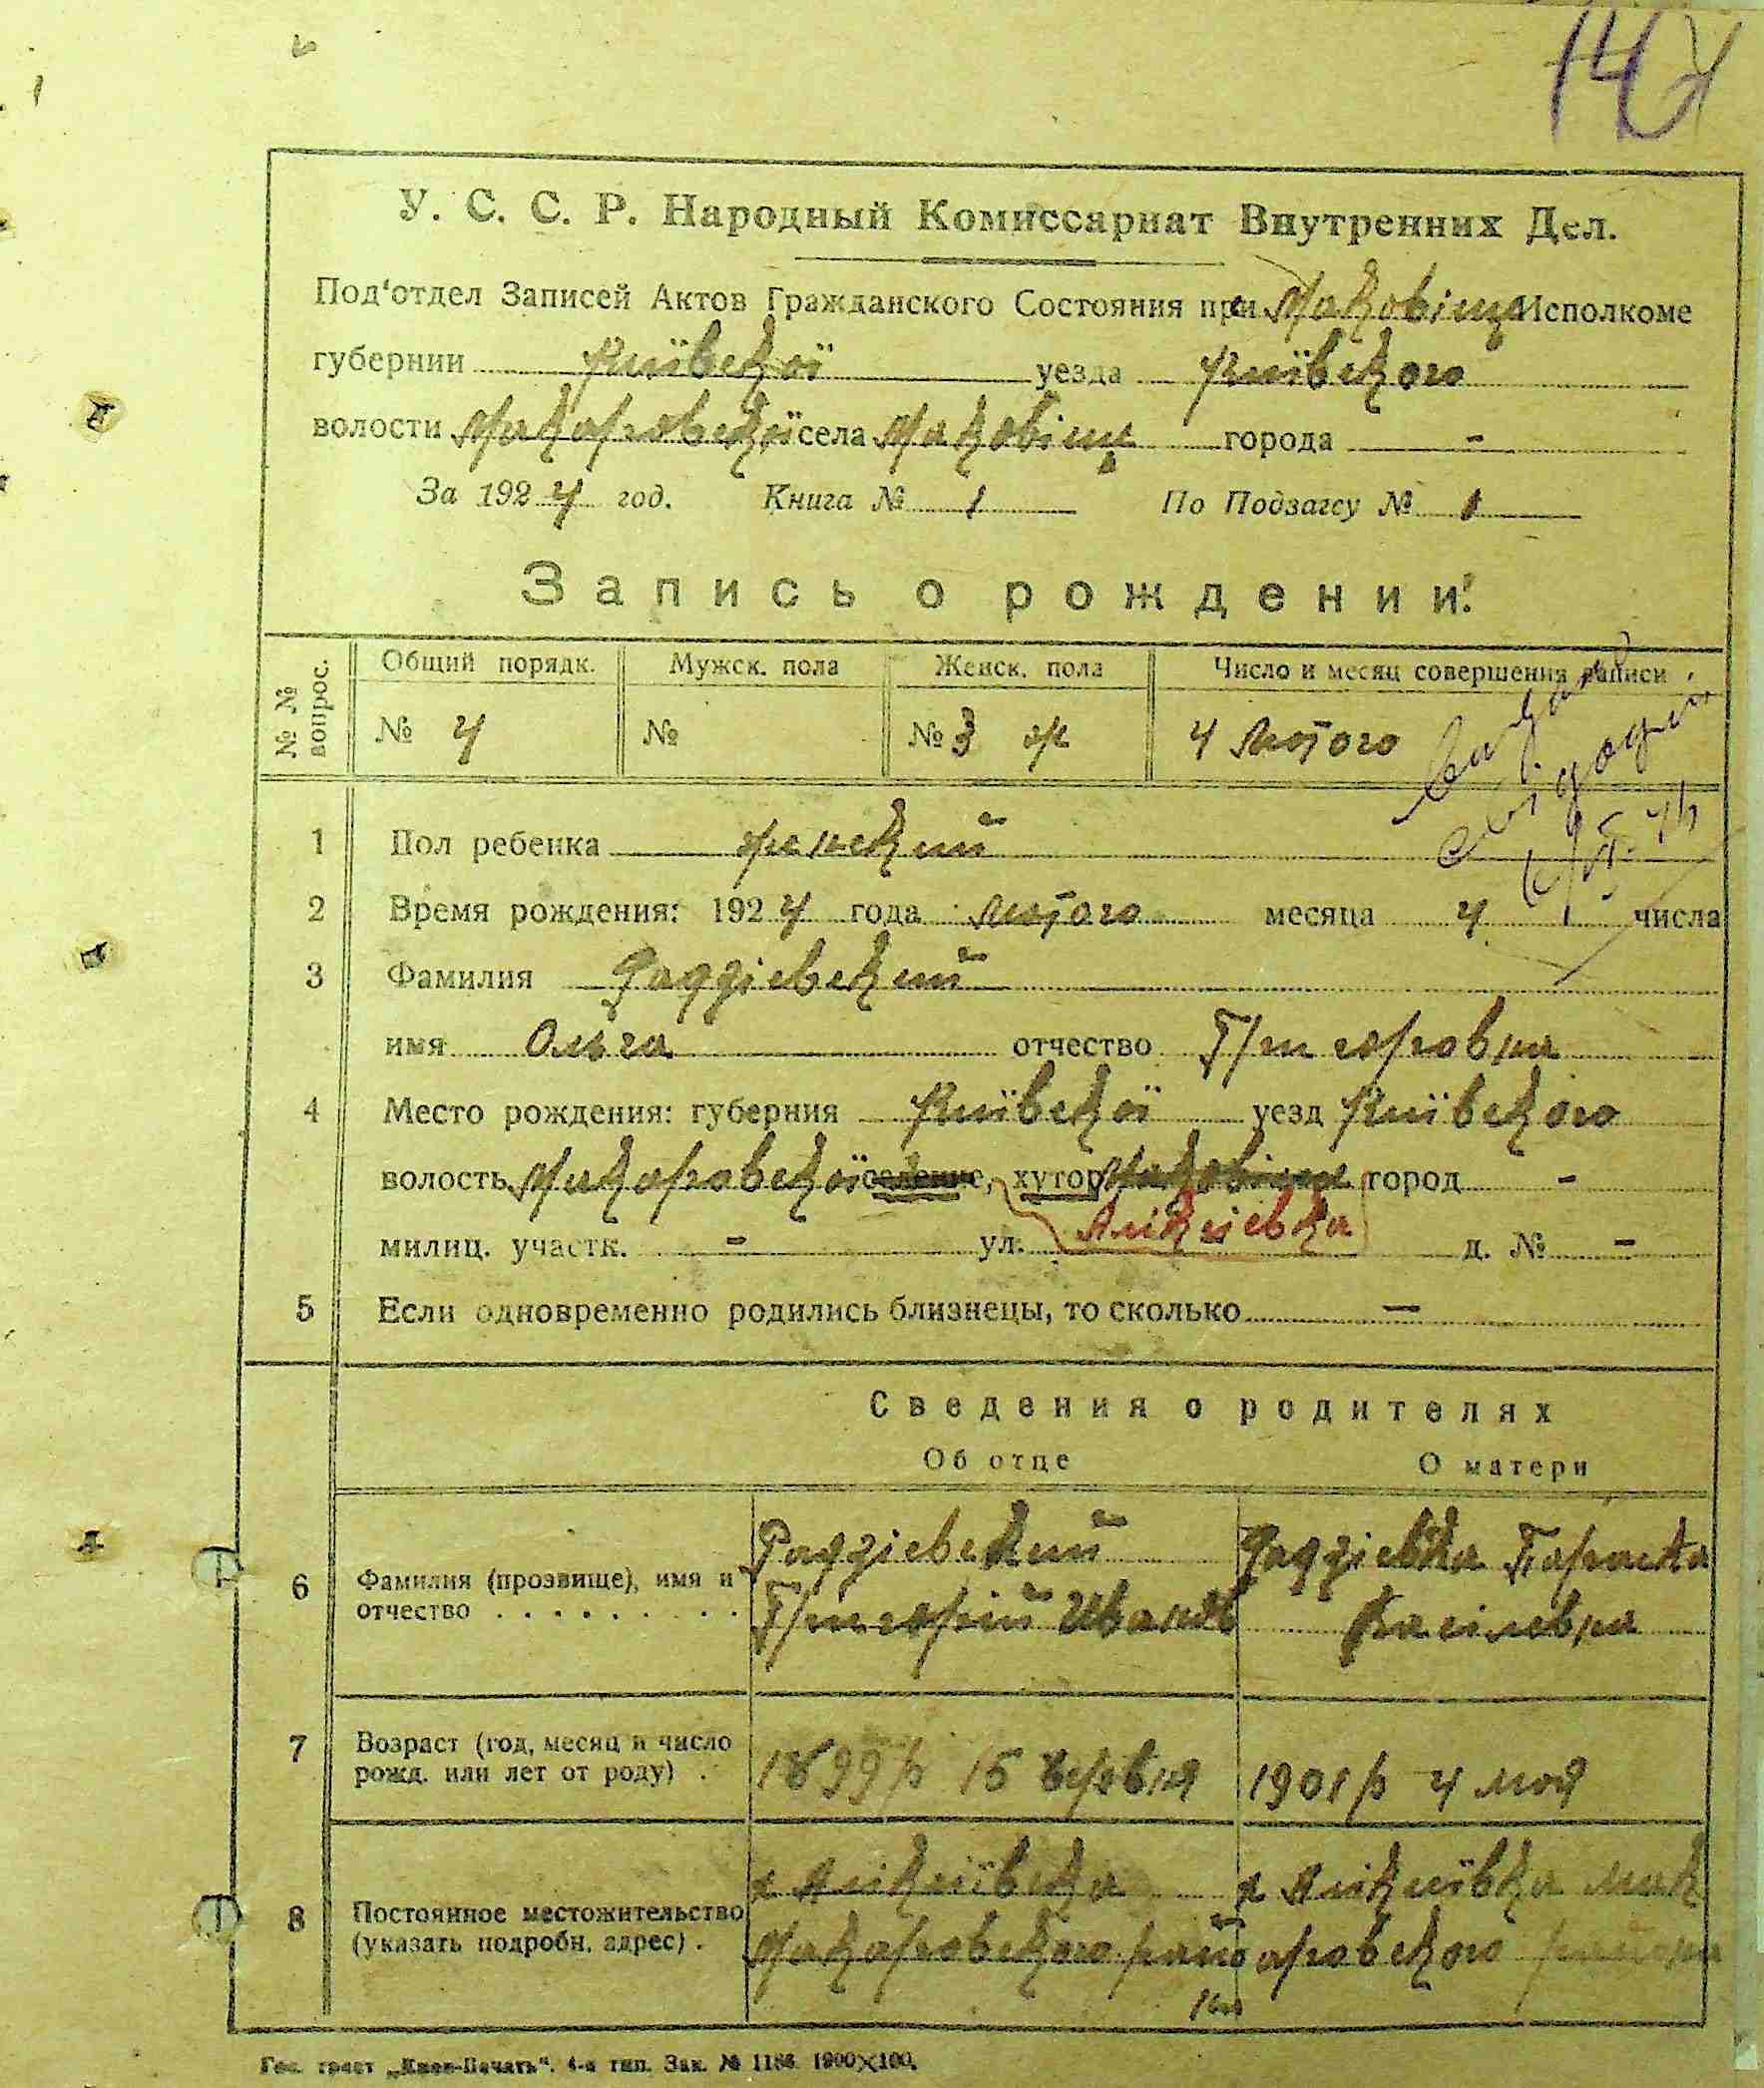 У. С. С. Р. Народный Комиссариат Внутренних Дел.
Под'отдел Записей Актов Гражданского Состояния при с. Маковіща Исполкоме
губернии Київської уезда Київського
волости Макаровської села Маковіща города -
За 1924 год. Книга № 1 По Подзагсу № 1
Запись о рождении.
№ № вопрос. Общий порядк. Мужск. пола Женск. пола Число и месяц совершения записи
№ 4 № № 3 ж 4 лютого
1 Пол ребенка женский
2 Время рождения: 1924 года лютого месяца 4 числа
3 Фамилия Раддіевский
имя Ольга отчество Григоровна
4 Место рождения: губерния Київської уезд Київського
волость Макаровської селение, хутор Маковіща город -
милиц. участк. - ул. д. № -
5 Если одновременно родились близнецы, то сколько —
Сведения о родителях
Об отце О матери
6 Фамилия (прозвище), имя и отчество . . . . . . . . .
Раддіевский Григорій Іванов
Раддіевка Параска Василевна
7 Возраст (год, месяц и число рожд. или лет от роду) .
1899 р 15 червня
1901 р 4 мая
8 Постоянное местожительство (указать подробн. адрес) .
Макаровського району
Макаровського района
Гос. трест „Киев-Печать“. 4-я тип. Зак. № 1186. 1900×100.